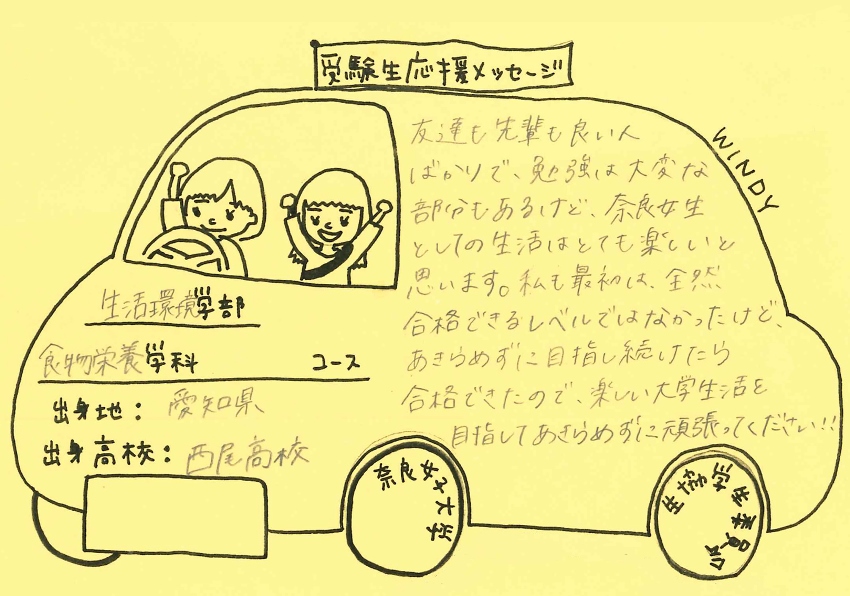 受験生応援メッセージ
WINDY
友達も先輩も良い人
ばかりで、勉強は大変な
部分もあるけど、奈良女生
としての生活はとても楽しいと
思います。私も最初は、全然
合格できるレベルではなかったけど、
あきらめずに目指し続けたら
合格できたので、楽しい大学生活を
目指してあきらめずに頑張ってください!!
生活環境学部
食物栄養学科 コース
出身地：愛知県
出身高校：西尾高校
奈良女子大学
生協学生委員会